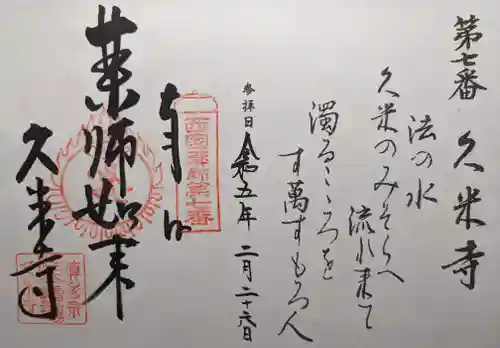 第七番 久米寺
法の水
久米のみそらへ
流れ来て
濁るこゝろを
す萬すもろ人
参拝日 令和五年 二月二十六日
奉拝
西国薬師第七番
薬師如来
久米寺